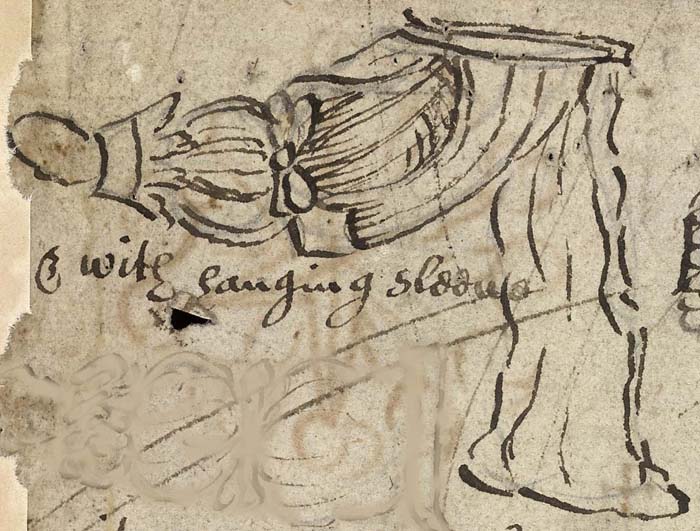 & with hanging sleeve